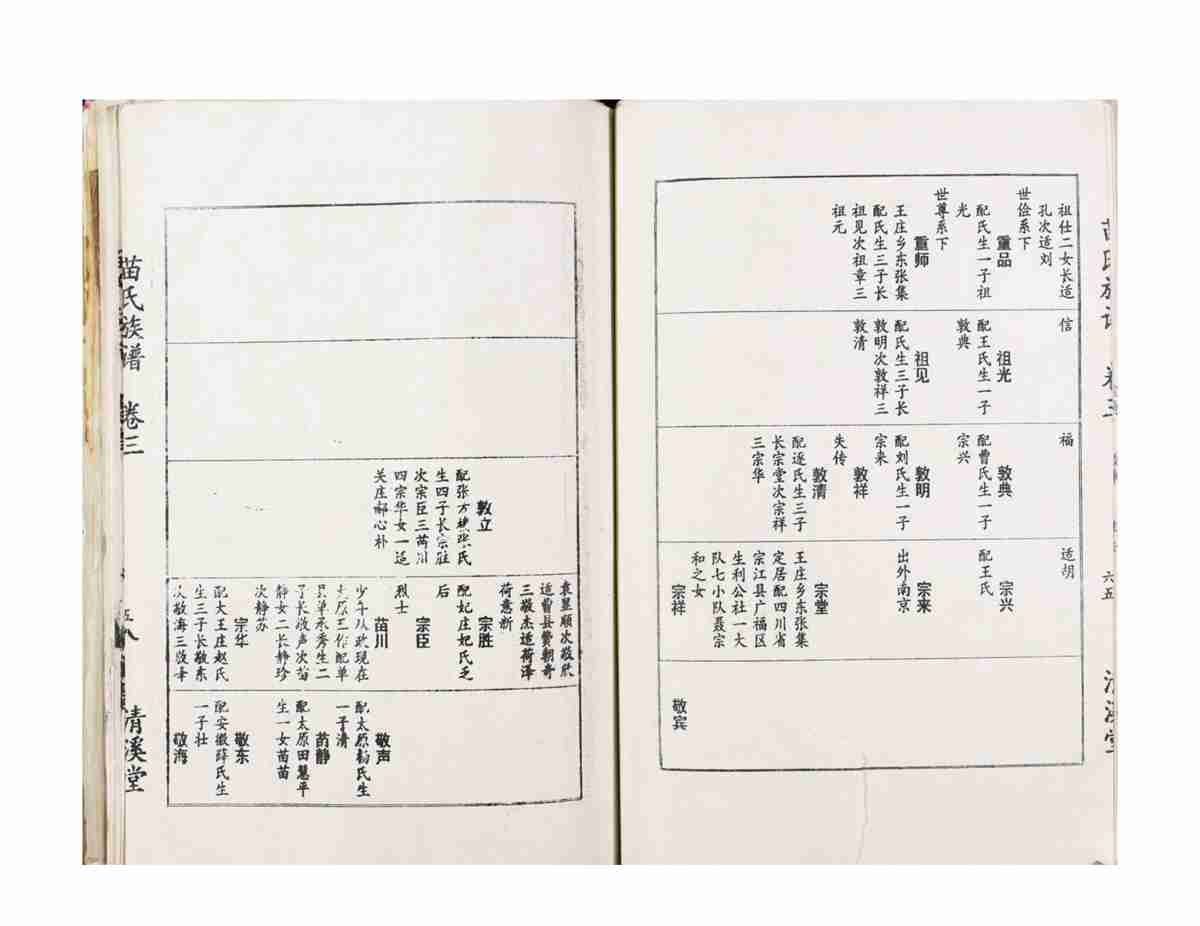 苗氏族谱 卷三
六五
清溪堂
祖仕二女长适
孔次适刘
世俭系下
重品
配氏生一子祖
光
世尊系下
重师
王庄乡东张集
配氏生三子长
祖见次祖章三
祖元
信
祖光
配王氏生一子
敦典
祖见
配氏生三子长
敦明次敦祥三
敦清
福
敦典
配曹氏生一子
宗兴
敦明
配刘氏生一子
宗来
敦祥
失传
敦清
配逯氏生三子
长宗堂次宗祥
三宗华
适胡
宗兴
配王氏
宗来
出外南京
宗堂
王庄乡东张集
定居配四川省
宗江县广福区
生利公社一大
队七小队聂宗
和之女
宗祥
敬宾
敦立
配张方楼张氏
生四子长宗胜
次宗臣三苗川
四宗华女一适
关庄郝心朴
袁显顺次敬欣
适曹县贾朝奇
三敬杰适荷泽
荷意新
宗胜
配妃庄妃氏乏
后
宗臣
烈士
苗川
少年从政现在
太原工作配单
县单承秀生二
子长敬声次苗
静女二长静珍
次静苏
宗华
配大王庄赵氏
生三子长敬东
次敬海三敬峰
敬声
配太原杨氏生
一子清
苗静
配太原田慧平
生一女苗苗
敬东
配安徽薛氏生
一子壮
敬海
苗氏族谱 卷三
清溪堂